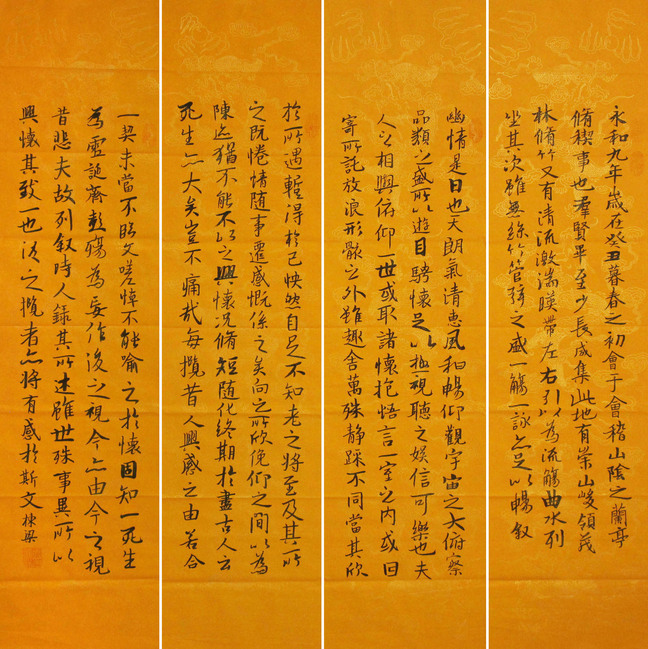 永和九年歲在癸丑暮春之初會于會稽山陰之蘭亭
脩稧事也羣賢畢至少長咸集此地有崇山峻領茂
林脩竹又有清流激湍暎帶左右引以為流觴曲水列
坐其次雖無絲竹管弦之盛一觴一詠亦足以暢叙
幽情是日也天朗氣清惠風和暢仰觀宇宙之大俯察
品類之盛所以遊目騁懷足以極視聽之娛信可樂也夫
人之相與俯仰一世或取諸懷抱悟言一室之內或因
寄所託放浪形骸之外雖趣舍萬殊静躁不同當其欣
於所遇蹔得於己怏然自足不知老之將至及其所
之既惓情随事遷感慨係之矣向之所欣俛仰之間以為
陳迹猶不能不以之興懷況脩短随化終期於盡古人云
死生亦大矣豈不痛哉每攬昔人興感之由若合
一契未嘗不臨文嗟悼不能喻之於懷固知一死生
為虛誕齊彭殤為妄作後之視今亦由今之視
昔悲夫故列叙時人錄其所述雖世殊事異所以
興懷其致一也後之攬者亦將有感於斯文 棟梁